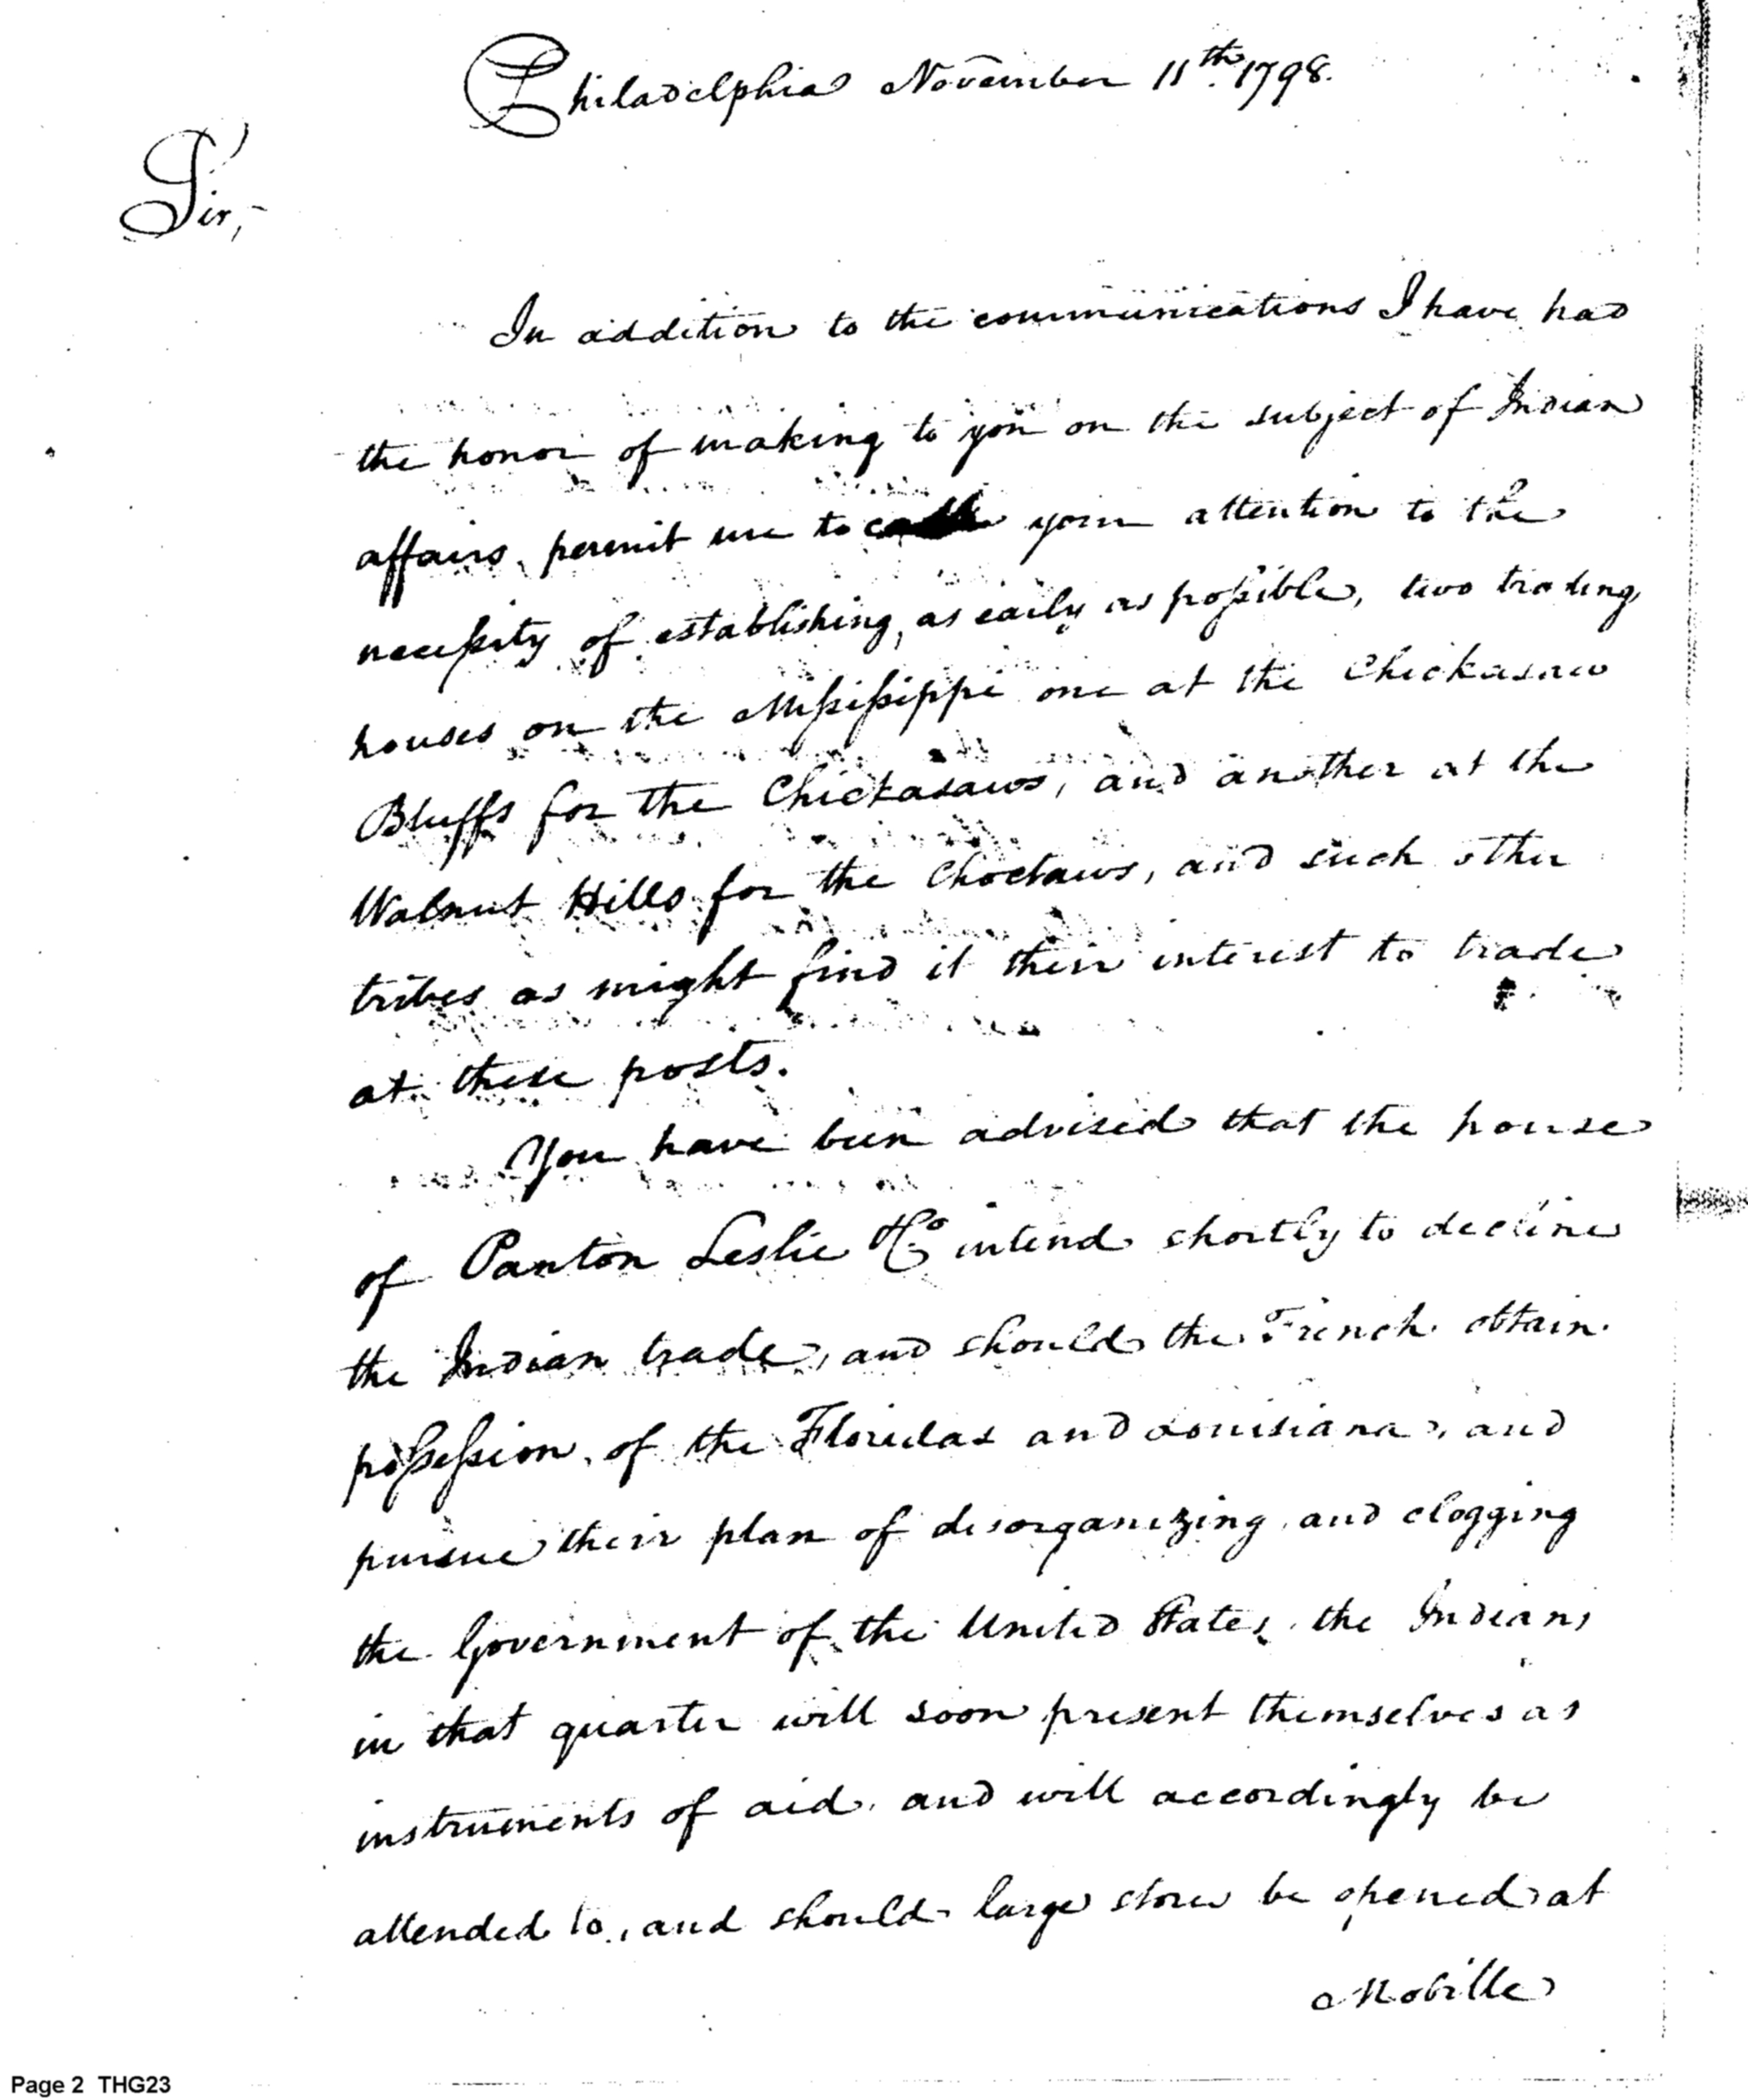 Philadelphia November 11th. 1798.
Sir,-
In addition to the communications I have had
the honor of making to you on the subject of Indian
affairs, permit me to call your attention to the
necessity of establishing, as early as possible, two trading
houses on the Missisippi one at the Chickasaw
Bluffs for the Chickasaws, and another at the
Walnut Hills for the Choctaws, and such other
tribes as might find it their interest to trade
at these posts.
You have been advised that the house
of Panton Leslie & Co intend shortly to decline
the Indian trade, and should the French obtain
possession, of the Floridas and Louisiana, and
pursue their plan of disorganizing, and clogging
the Government of the United States, the Indians
in that quarter will soon present themselves as
instruments of aid, and will accordingly be
attended to, and should large stores be opened at
Mobille
Page 2 THG23